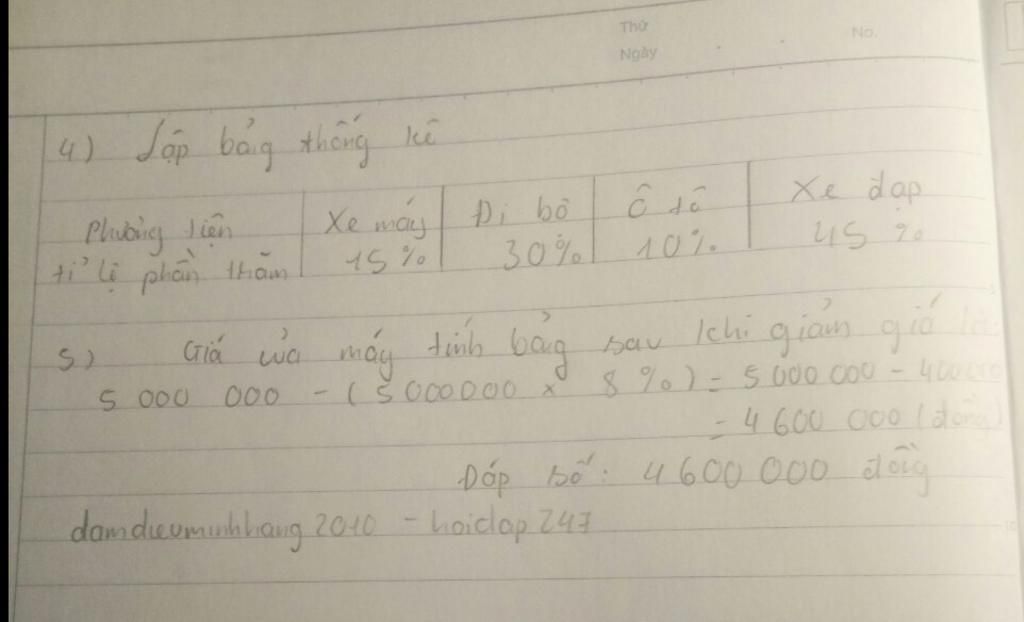 Thứ
Ngày
No.
4) Lập bảng thống kê
Phương tiện | Xe máy | Đi bộ | Ô tô | Xe đạp
tỉ lệ phần thăm | 15% | 30% | 10% | 45%
5) Giá của máy tính bảng sau khi giảm giá là:
5 000 000 - (5000000 x 8%) = 5 000 000 - 400000
= 4 600 000 (đồng)
Đáp số: 4 600 000 đồng
damdieuminhhang2010 - hoidap247